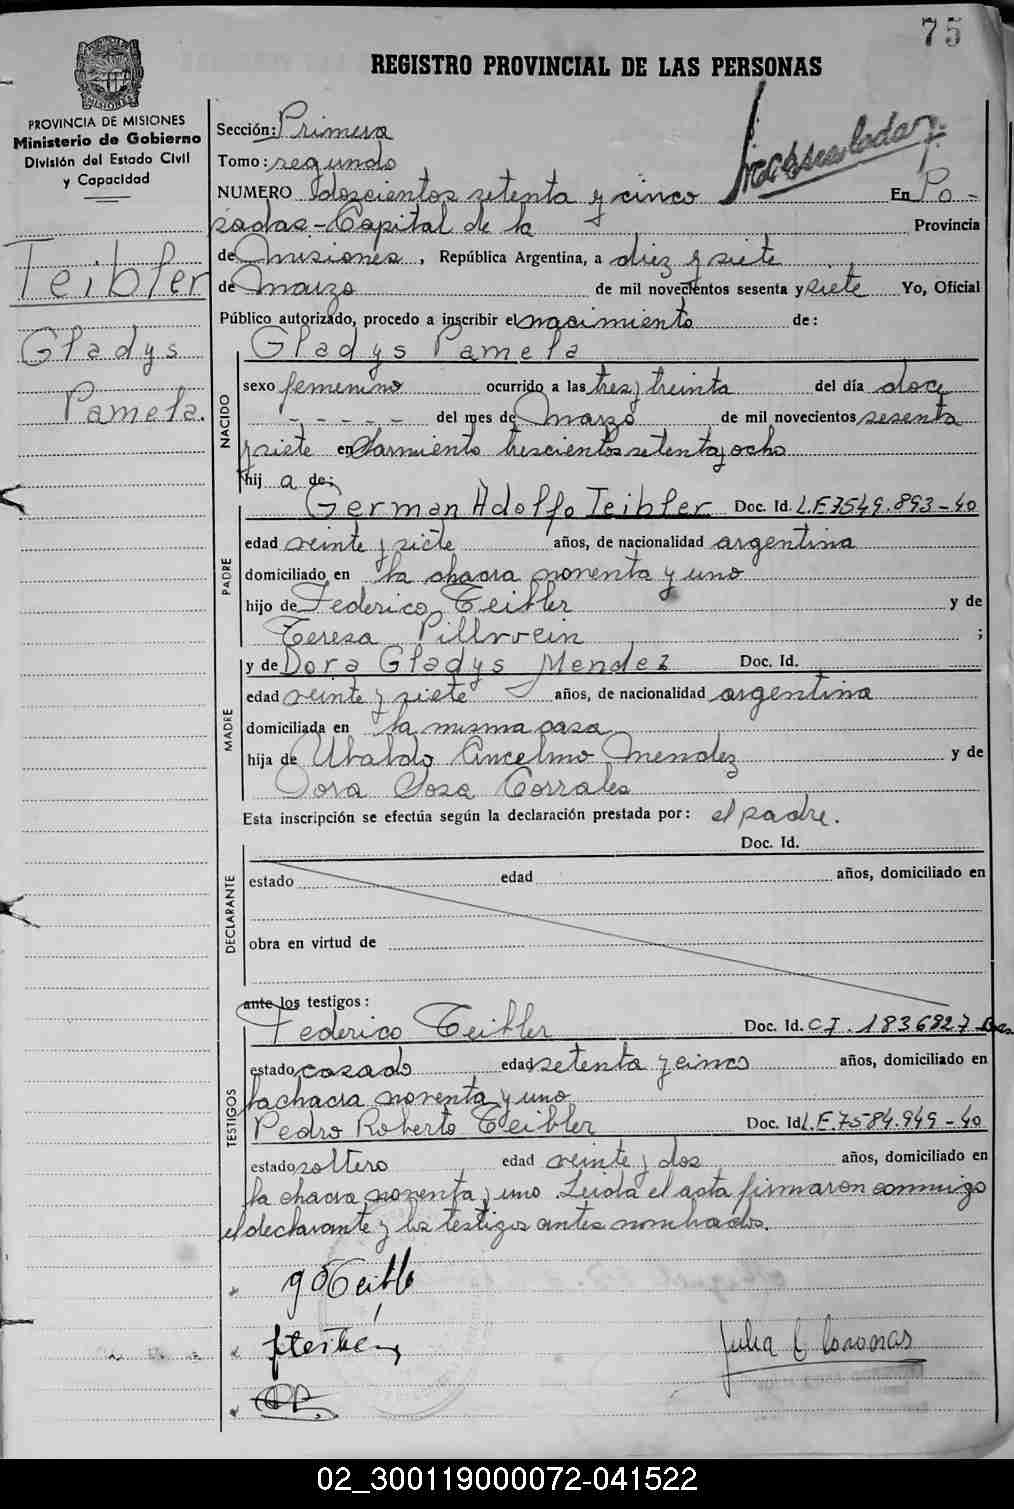 75
REGISTRO PROVINCIAL DE LAS PERSONAS
PROVINCIA DE MISIONES
Ministerio de Gobierno
División del Estado Civil
y Capacidad
Teibler
Gladys
Pamela.
Sección: Primera
Tomo: segundo
NUMERO doscientos setenta y cinco En Po-
sadas - Capital de la Provincia
de Misiones, República Argentina, a diez y siete
de Marzo de mil novecientos sesenta y siete Yo, Oficial
Público autorizado, procedo a inscribir el nacimiento de:
Gladys Pamela
NACIDO
sexo femenino ocurrido a las tres y treinta del día doce
- - - - - del mes de Marzo de mil novecientos sesenta
y siete en Sarmiento trescientos setenta y ocho
hij a de:
PADRE
German Adolfo Teibler Doc. Id. L.E 7549.893-40
edad veinte y siete años, de nacionalidad argentina
domiciliado en la chacra noventa y uno
hijo de Federico Teibler y de
Teresa ;
MADRE
y de Dora Gladys Mendez Doc. Id.
edad veinte y siete años, de nacionalidad argentina
domiciliada en la misma casa
hija de Ubaldo Ancelmo Mendez y de
Dora Sosa Corrales
Esta inscripción se efectúa según la declaración prestada por: el padre.
DECLARANTE
Doc. Id.
estado edad años, domiciliado en
obra en virtud de
ante los testigos:
TESTIGOS
Federico Teibler Doc. Id. CI. 1836827
estado casado edad setenta y cinco años, domiciliado en
la chacra noventa y uno
Pedro Roberto Teibler Doc. Id L.E. 7584.949-40
estado soltero edad veinte y dos años, domiciliado en
la chacra noventa y uno. Leida el acta firmaron conmigo
el declarante y los testigos antes nombrados.
Julia C Coronas
02_300119000072-041522